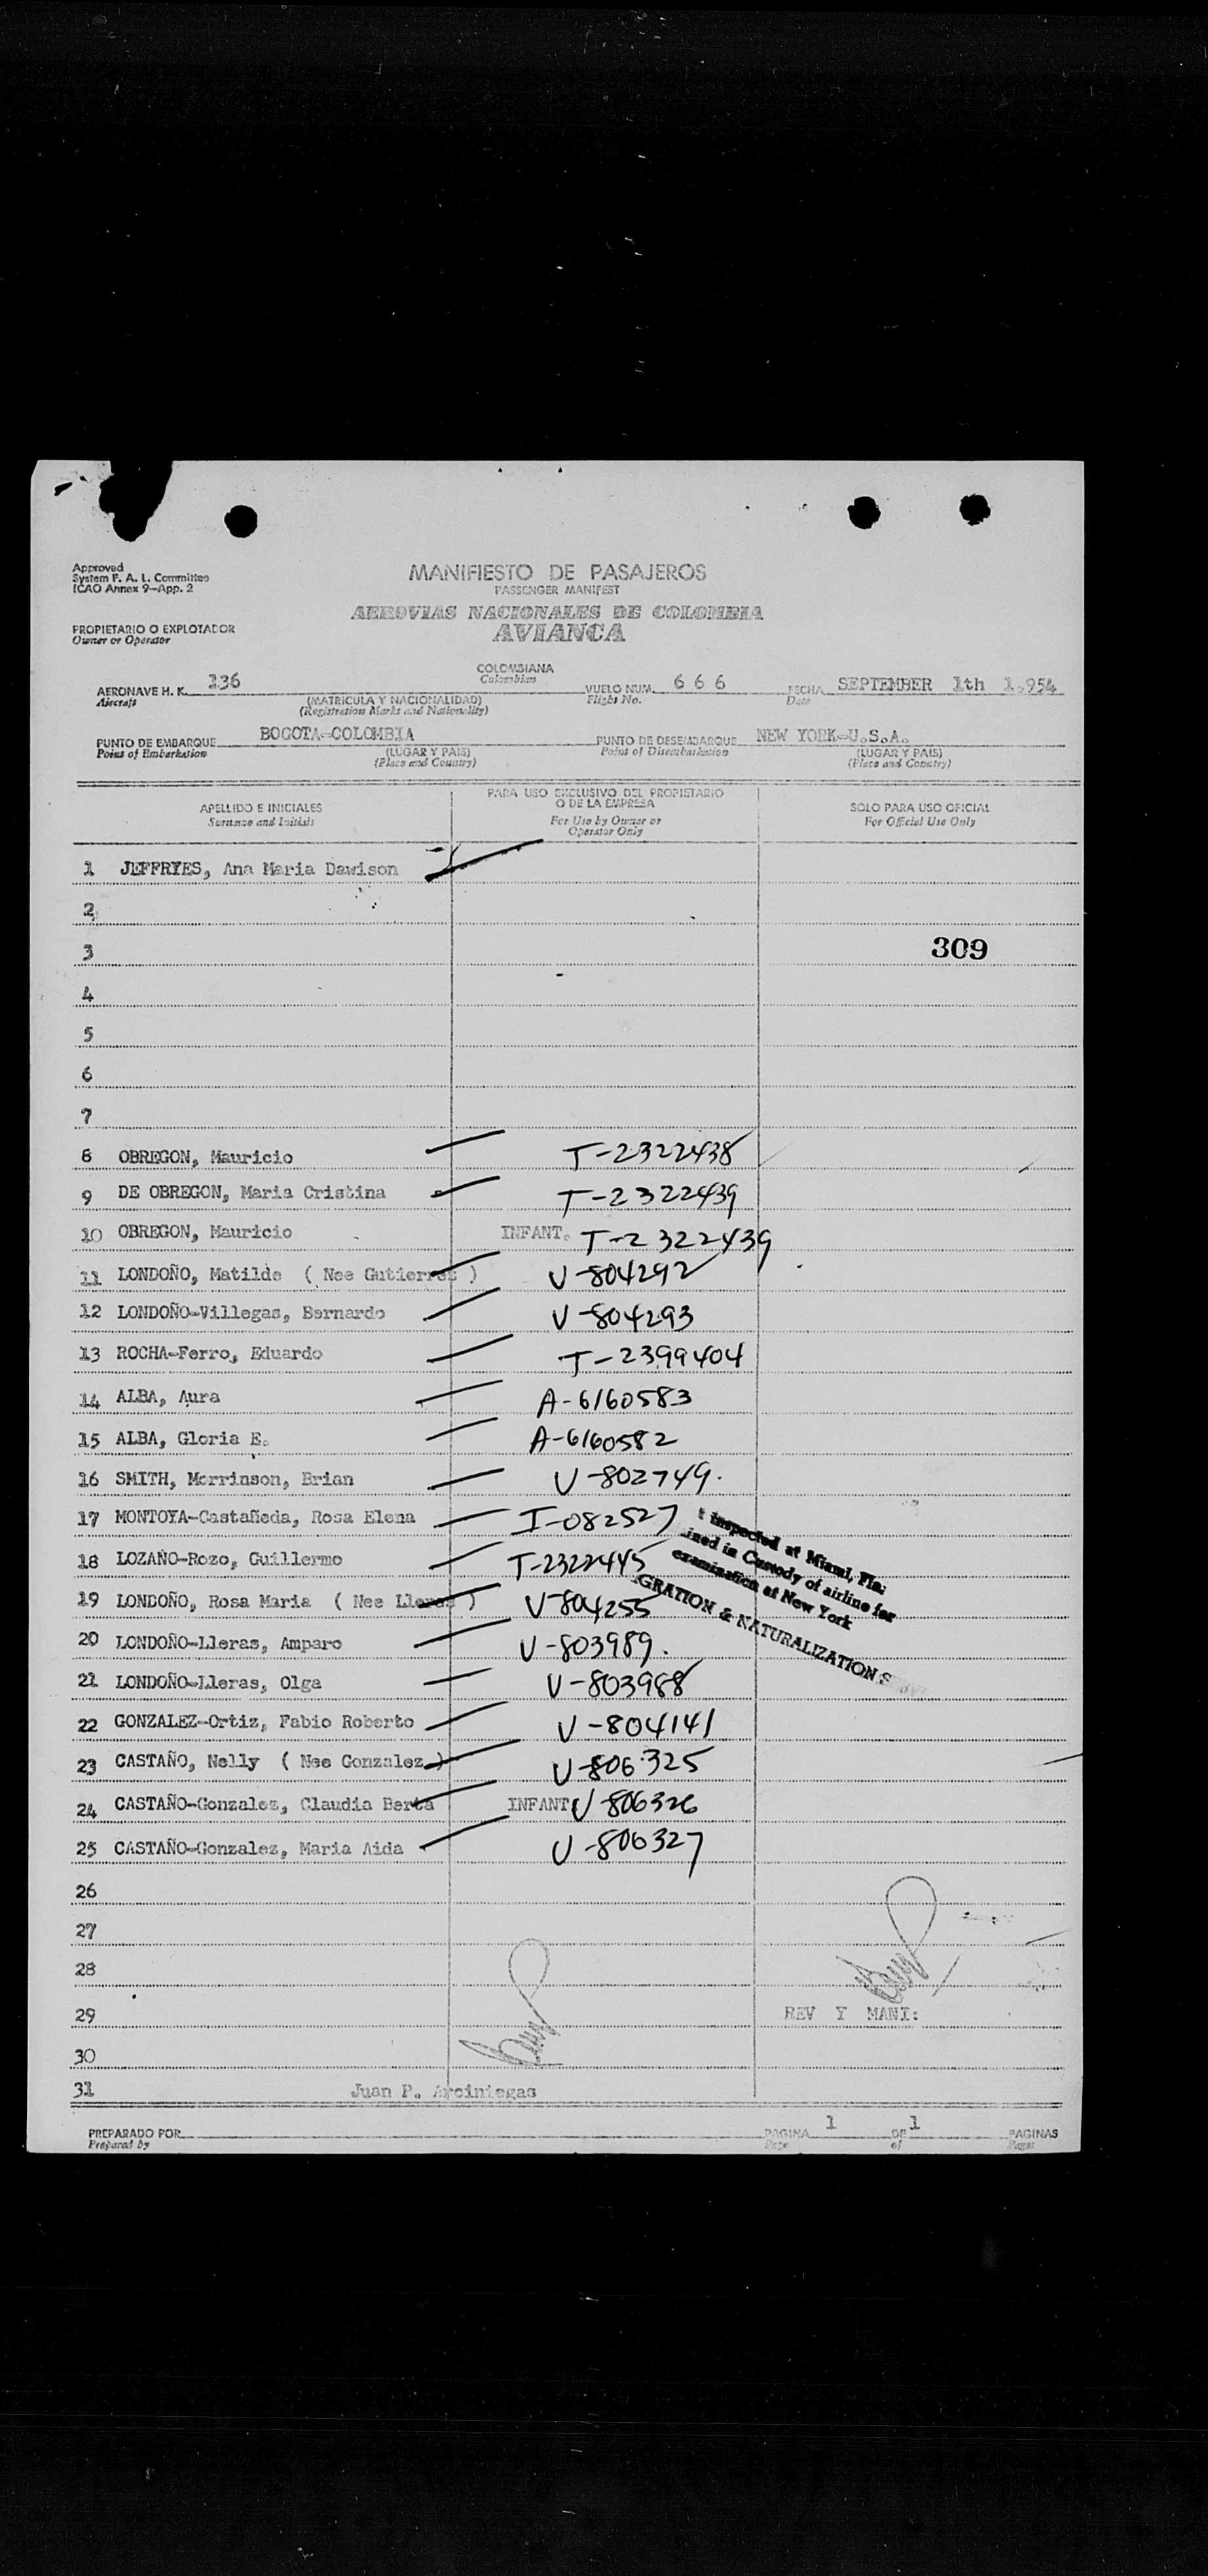 Approved
System F. A. L. Committee
ICAO Annex 9-App. 2
MANIFIESTO DE PASAJEROS
PASSENGER MANIFEST
AEROVIAS NACIONALES DE COLOMBIA
AVIANCA
PROPIETARIO O EXPLOTADOR
Owner or Operator
COLOMBIANA
Colombian
AERONAVE H. K. 136 VUELO NUM. 6 6 6 FECHA SEPTEMBER 1th 1.954
Aircraft (MATRICULA Y NACIONALIDAD) Flight No. Date
(Registration Marks and Nationality)
PUNTO DE EMBARQUE BOGOTA-COLOMBIA PUNTO DE DESEMBARQUE NEW YORK-U.S.A.
Point of Embarkation (LUGAR Y PAIS) Point of Disembarkation (LUGAR Y PAIS)
(Place and Country) (Place and Country)
APELLIDO E INICIALES PARA USO EXCLUSIVO DEL PROPIETARIO O DE LA EMPRESA SOLO PARA USO OFICIAL
Surname and Initials For Use by Owner or Operator Only For Official Use Only
1 JEFFRYES, Ana Maria Dawison
2
3 309
4
5
6
7
8 OBREGON, Mauricio T-2322438
9 DE OBREGON, Maria Cristina T-2322439
10 OBREGON, Mauricio INFANT. T-2322439
11 LONDOÑO, Matilde ( Nee Gutierrez ) V-804292
12 LONDOÑO-Villegas, Bernardo V-804293
13 ROCHA-Ferro, Eduardo T-2399404
14 ALBA, Aura A-6160583
15 ALBA, Gloria E. A-6160582
16 SMITH, Morrinson, Brian V-802749.
17 MONTOYA-Castañeda, Rosa Elena I-082527
18 LOZAÑO-Rozo, Guillermo T-2322445
19 LONDOÑO, Rosa Maria ( Nee Lleras ) V-804255
20 LONDOÑO-Lleras, Amparo V-803989.
21 LONDOÑO-Lleras, Olga V-803988
22 GONZALEZ-Ortiz, Fabio Roberto V-804141
23 CASTAÑO, Nelly ( Nee Gonzalez ) V-806325
24 CASTAÑO-Gonzalez, Claudia Berta INFANT V-806326
25 CASTAÑO-Gonzalez, Maria Aida V-806327
t inspected at Miami, Fla:
ined in Custody of airline for
examination at New York
GRATION & NATURALIZATION S
26
27
28
29 REV Y MANI:
30
31 Juan P. Arciniegas
PREPARADO POR PAGINA 1 DE 1 PAGINAS
Prepared by Page of Pages